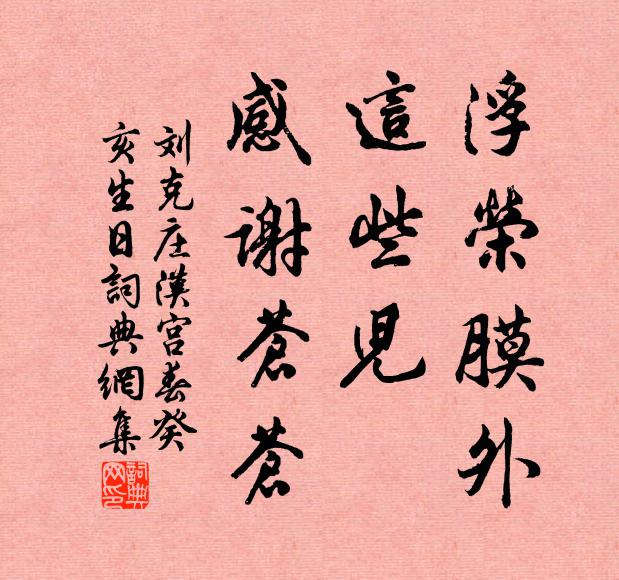 浮榮膜外
這些兒
感謝蒼蒼
刘克庄漢宮春癸
亥生日詞典網集
詞典
网印